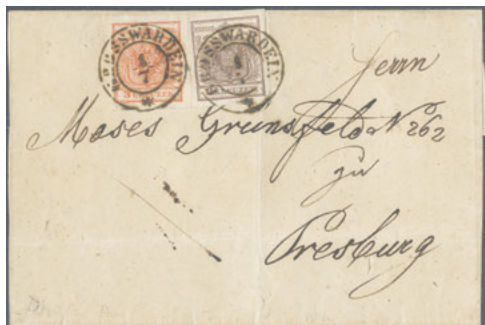 GROSSWARDEIN
1/7
GROSSWARDEIN
1/7
Herrn
Moses Grünsfeld N° 262
zu
Presburg